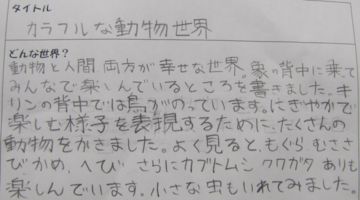 タイトル
カラフルな動物世界
どんな世界?
動物と人間、両方が幸せな世界。象の背中に乗て
みんなで楽しんでいるところを書きました。キ
リンの背中では鳥がのっています。にぎやかで
楽しむ様子を表現するために、たくさんの
動物をかきました。よく見ると、もぐら むささ
びかめ、へび さらにカブトムシ クワガタ ありも
楽しんでいます。小さな虫もいれてみました。